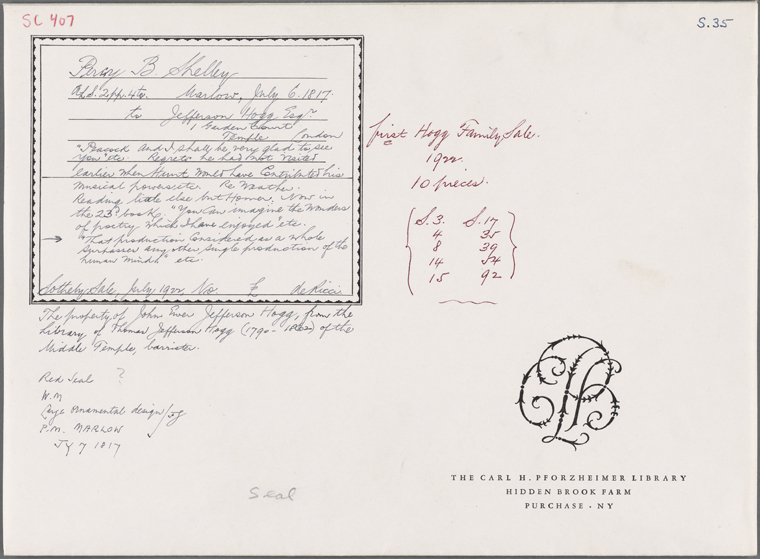 SC 407
S.35
Percy B. Shelley
A.L.S. 2pp. 4to. Marlow, July 6. 1817.
to Jefferson Hogg Esqr.
1 Garden Court
Temple London
"Peacock and I shall be very glad to see
you" etc. Regrets he had not visited
earlier when Hunt would have contributed his
musical powers etc. Re Weather.
Reading little else but Homer. Now in
the 23d book. "You can imagine the wonders
of poetry which I have enjoyed" etc.
→ "That production considered as a whole
surpasses any other single production of the
human mind" etc.
Sotheby Sale, July 1922 No. £ de Ricci
The property of John Ewer Jefferson Hogg, from the
Library of Thomas Jefferson Hogg (1790- ) of the
Middle Temple, barrister.
Red Seal ?
W.M
Large ornamental design
P.M. MARLOW
JY 7 1817
Seal
first Hogg Family Sale.
1922.
10 pieces.
S.3. S.17
4 35
8 39
14 54
15 92
THE CARL H. PFORZHEIMER LIBRARY
HIDDEN BROOK FARM
PURCHASE · NY